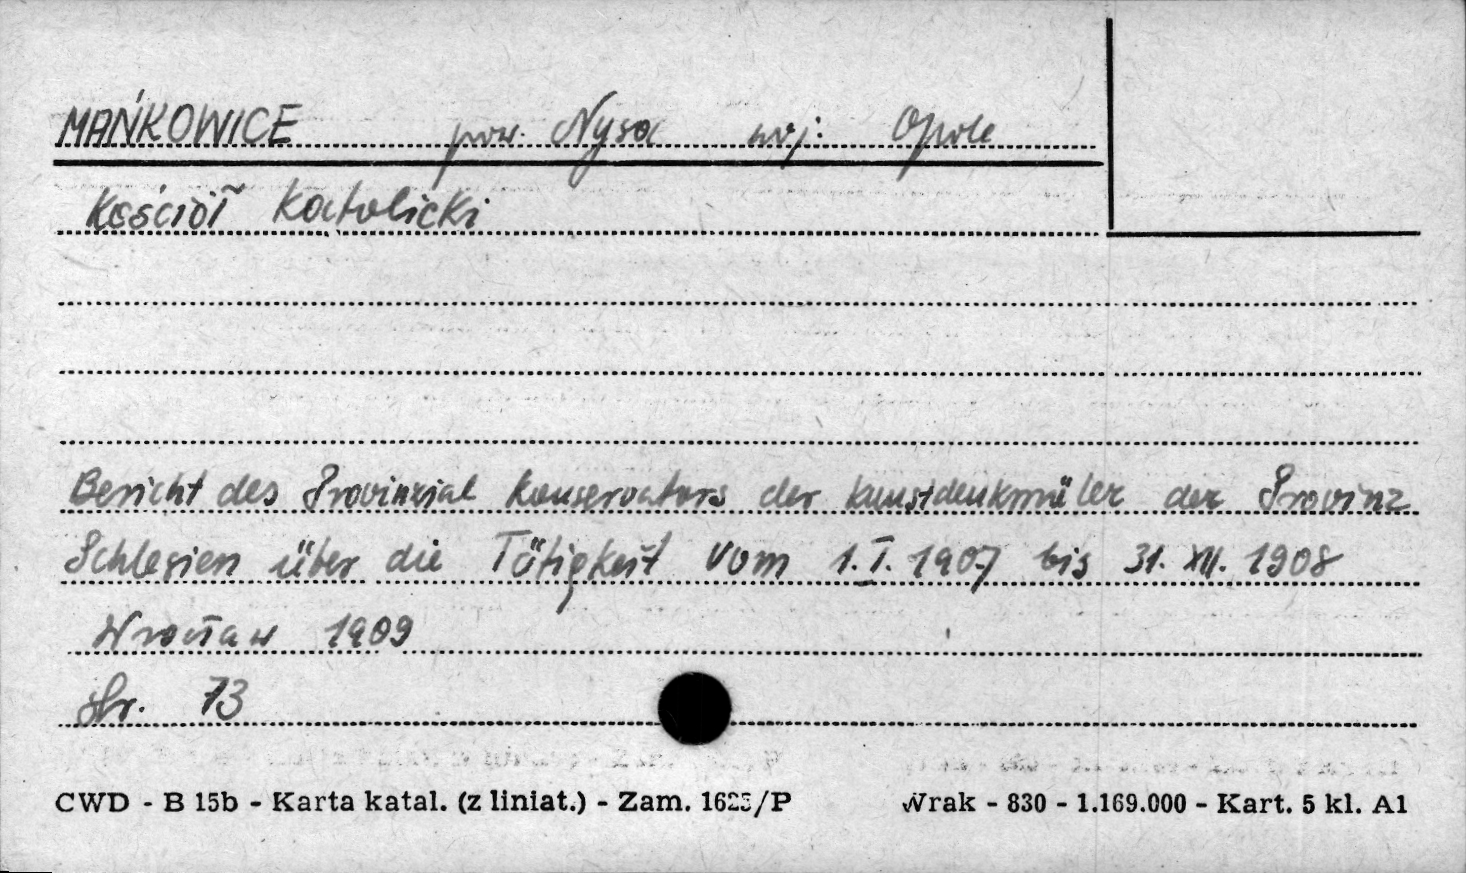 MAŃKOWICE pow. Nysa woj: Opole
Kościół Katolicki
Bericht des Provinzial Konservators der Kunstdenkmäler der Provinz
Schlesien über die Tätigkeit vom 1.I.1907 bis 31.XII.1908
Wrocław 1909
str. 73
CWD - B 15b - Karta katal. (z liniat.) - Zam. /P
Wrak - 830 - 1.169.000 - Kart. 5 kl. A1